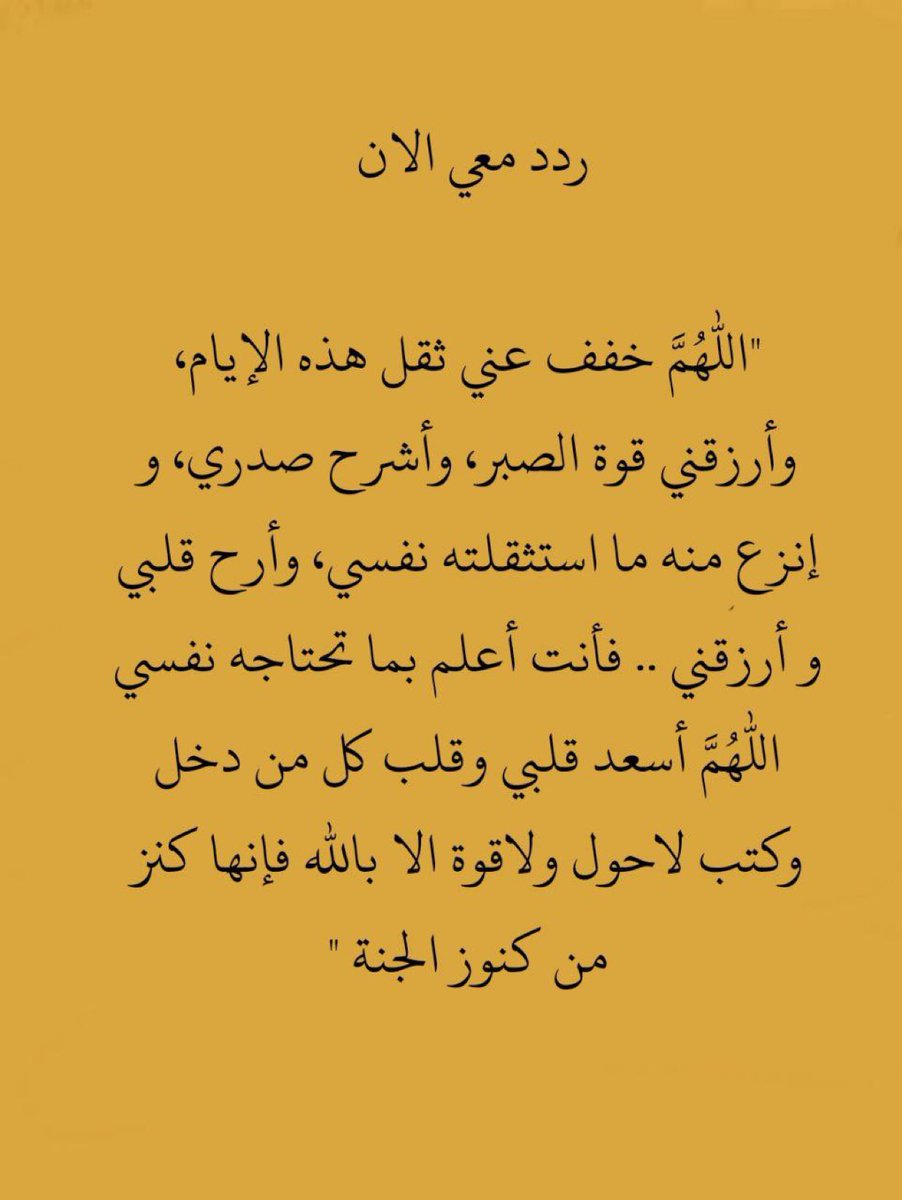 ردد معي الان
"اللّٰهُمَّ خفف عني ثقل هذه الإيام،
وأرزقني قوة الصبر، وأشرح صدري، و
إنزع منه ما استثقلته نفسي، وأرح قلبي
و أرزقني .. فأنت أعلم بما تحتاجه نفسي
اللّٰهُمَّ أسعد قلبي وقلب كل من دخل
وكتب لاحول ولاقوة الا بالله فإنها كنز
من كنوز الجنة "